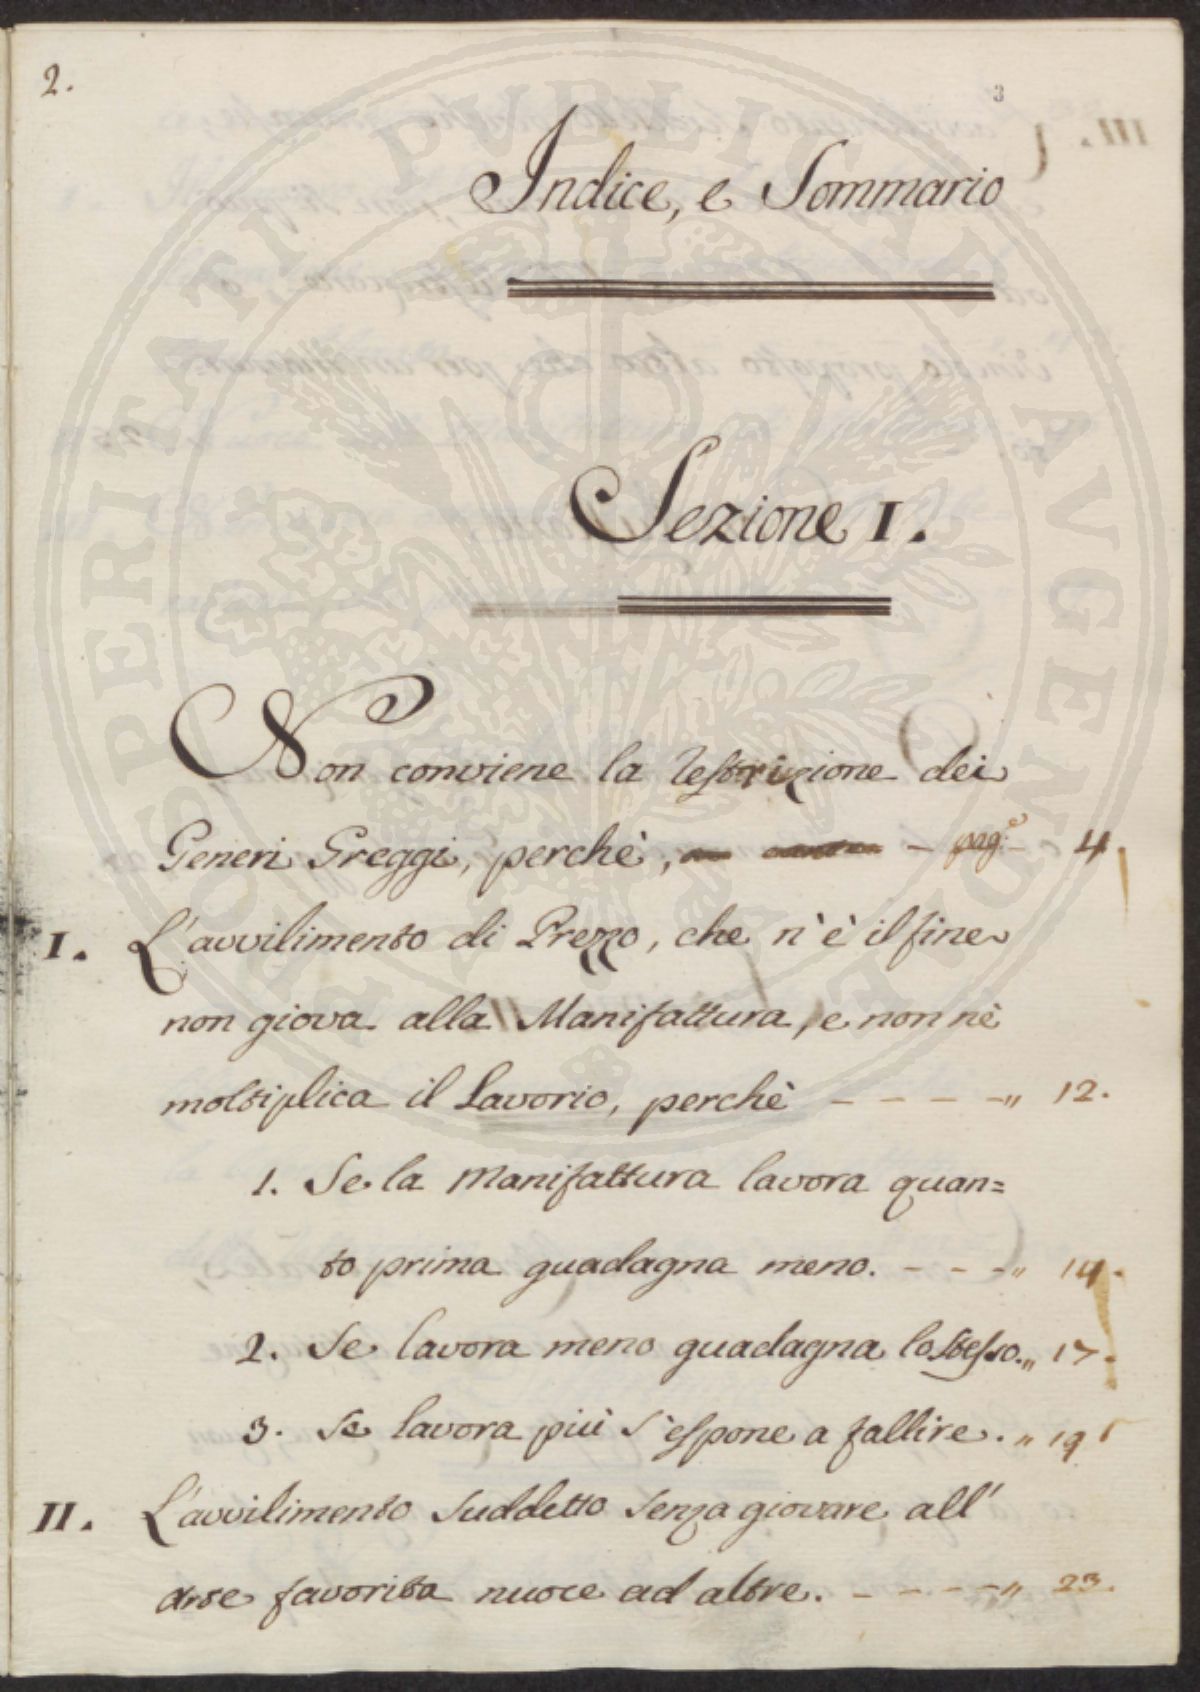 2.
3
Indice, e Sommario
Sezione I.
Non conviene la restrizione dei
Generi Greggi, perchè, - pag.e - 4.
I. L'avvilimento di Prezzo, che n'è il fine
non giova alla Manifattura, e non nè
moltiplica il Lavorio, perchè - - - - " 12.
1. Se la Manifattura lavora quan=
to prima guadagna meno. - - - " 14.
2. Se lavora meno guadagna lo stesso. " 17.
3. Se lavora più s'espone a fallire. " 19
II. L'avvilimento suddetto senza giovare all'
Arte favorita nuoce ad altre. - - - - " 23.
PROSPERITATI PUBLICAE AUGENDAE